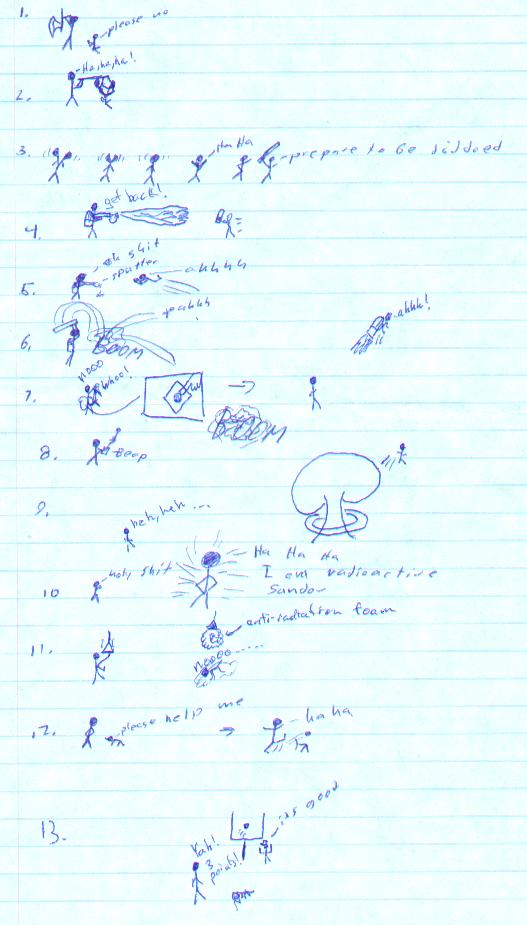 1. please no
2. Ha, ha, ha!
3. Ha Ha prepare to be
4. get back!
5. oh shit
sputter ahhhh
6. yeahhh
! ahhh!
BOOM
7. nooo
Whoo!
BOOM
8. Beep
9. heh, heh ...
10 holy shit Ha Ha Ha
I am radioactive
Sandor
11. anti-radiation foam
noooo.....
12. please help me haha
13. Yah!
3
points! its good